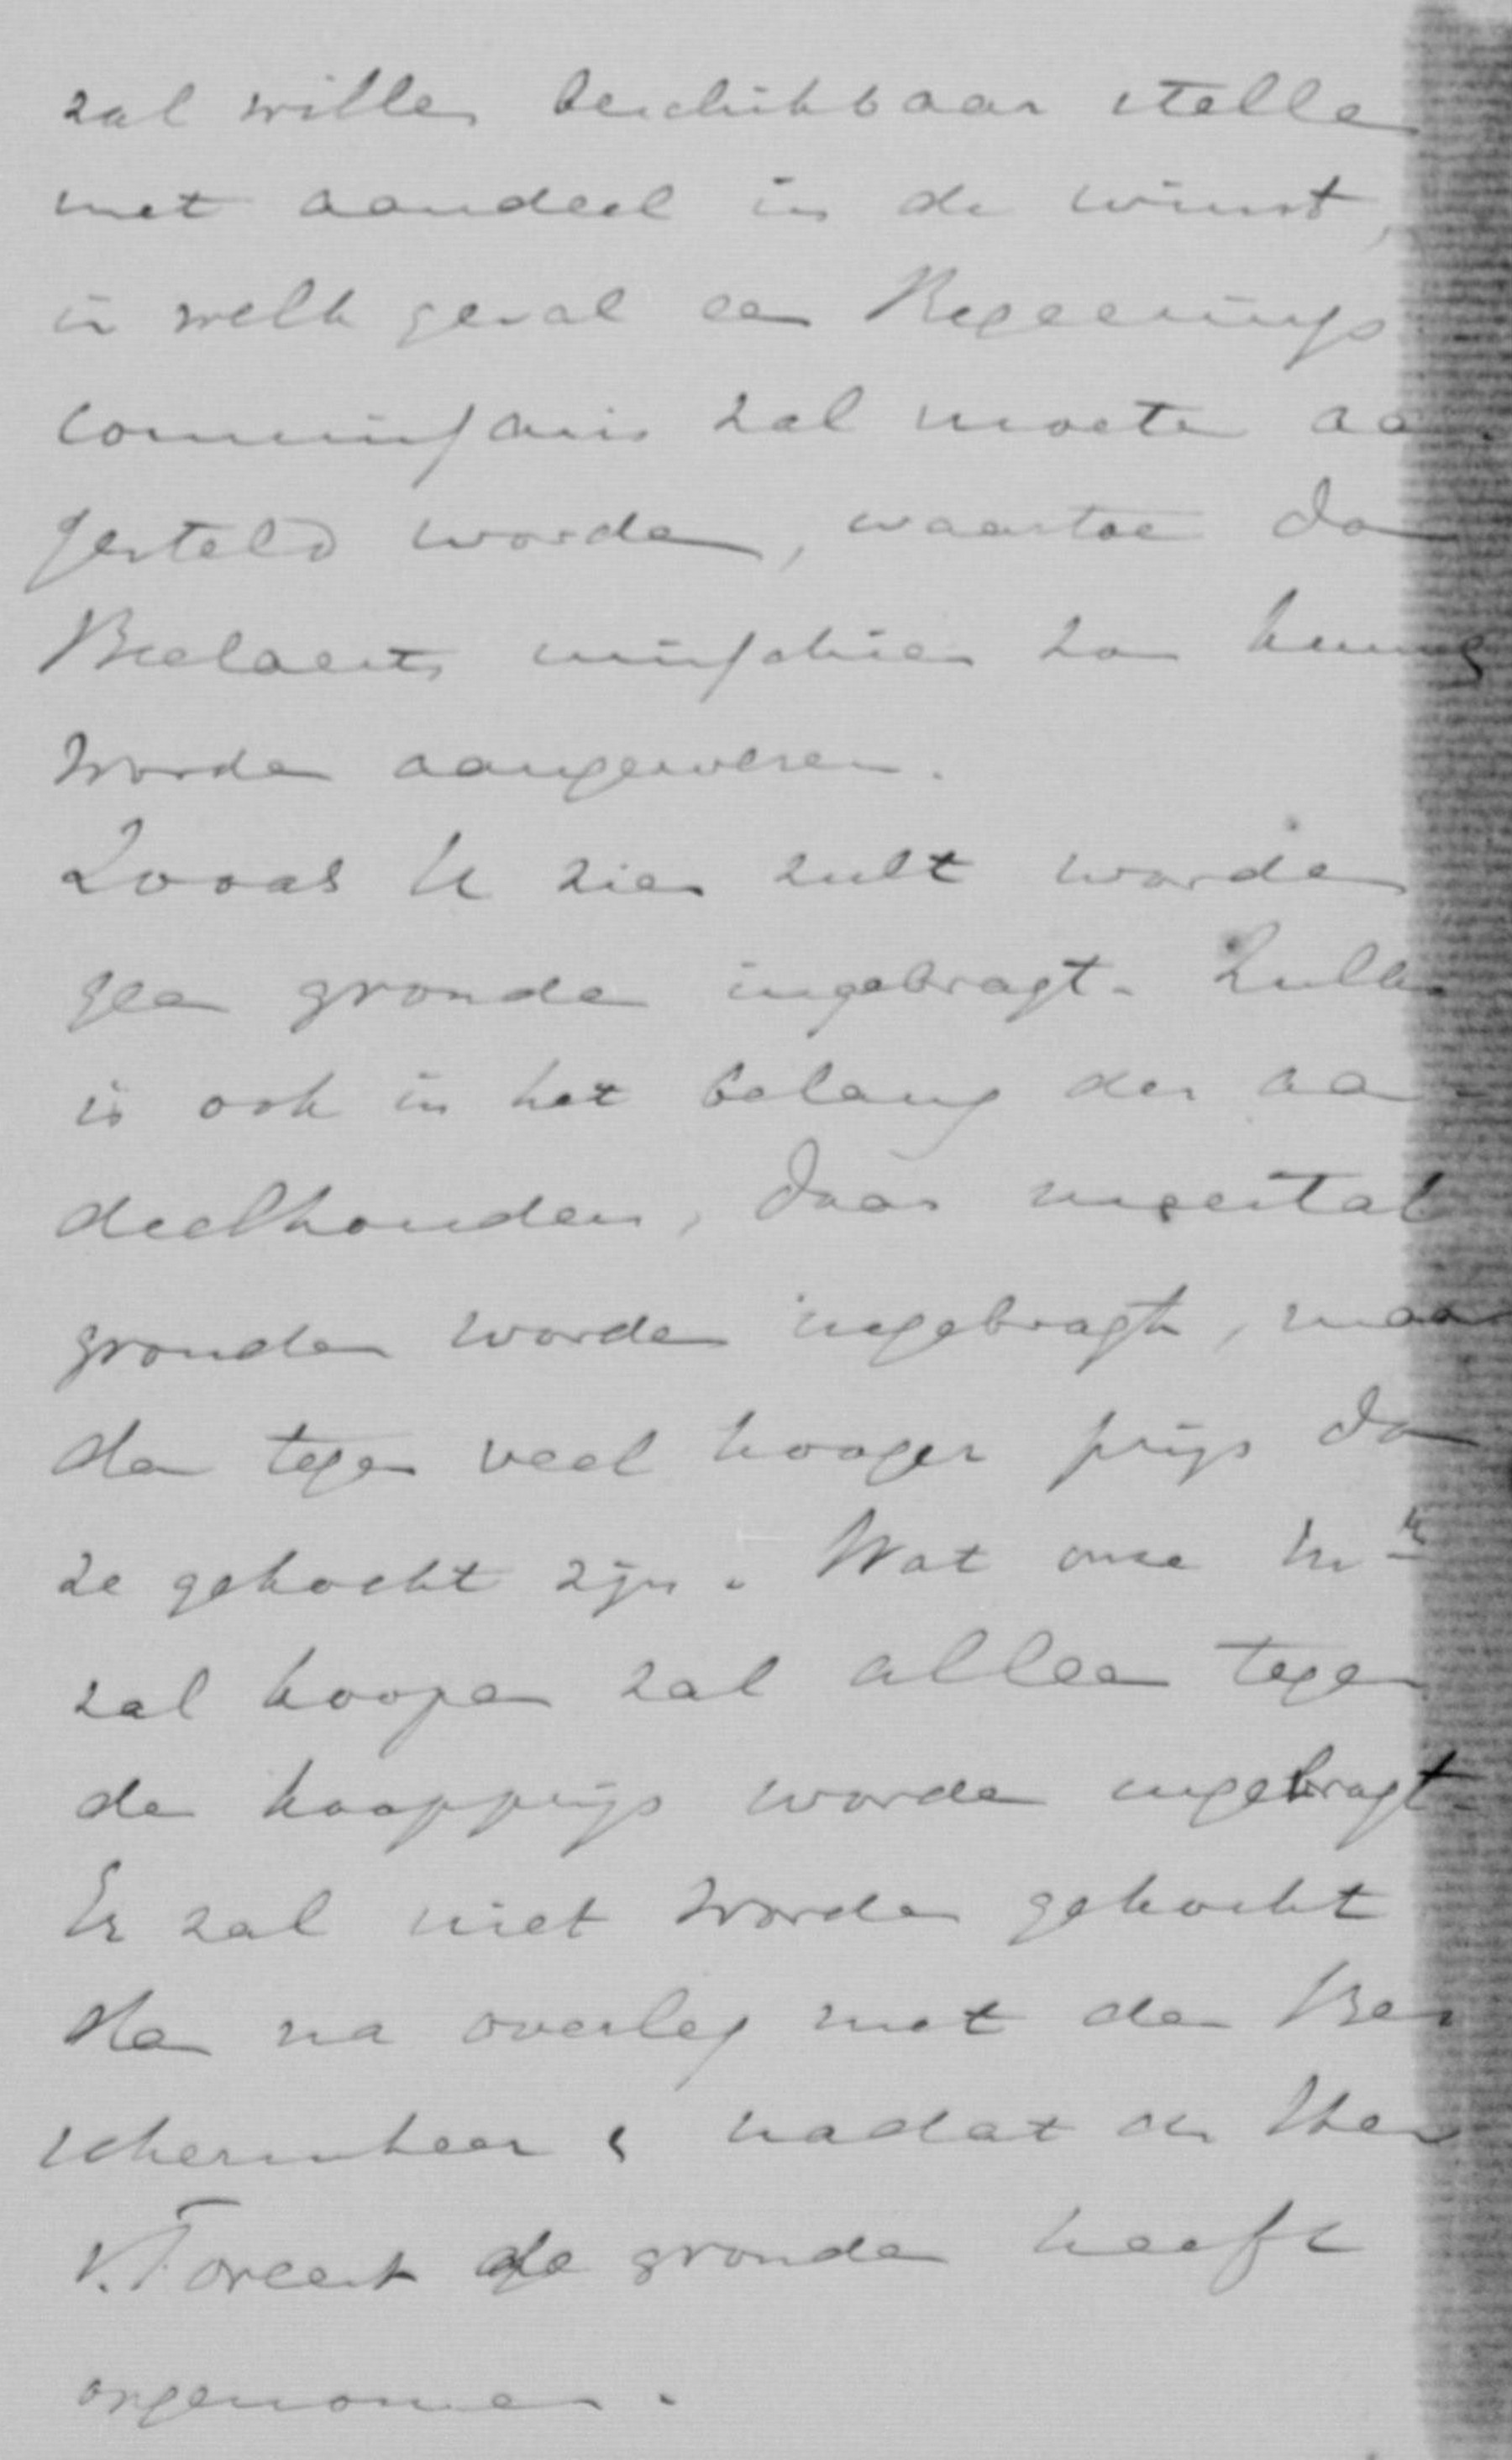 zal willen beschikbaar stellen
met aandeel in de winst,
in welk geval een Regeerings
commissaris zal moeten aan-
gesteld worden, waartoe dan
Beelaerts misschien zou kunnen
worden aangewezen.
Zooals U zien zult worden
geen gronden ingebragt. Zulks
is ook in het belang der aan-
deelhouders, daar meestal
gronden worden ingebragt, maar
dan tegen veel hooger prijs dan
ze gekocht zijn. Wat onze Mij
zal koopen zal alleen tegen
den koopprijs worden ingebragt.
Er zal niet worden gekocht
dan na overleg met den Bes
schermheer & nadat de Heer
v. Foreest de gronden heeft
opgenomen.